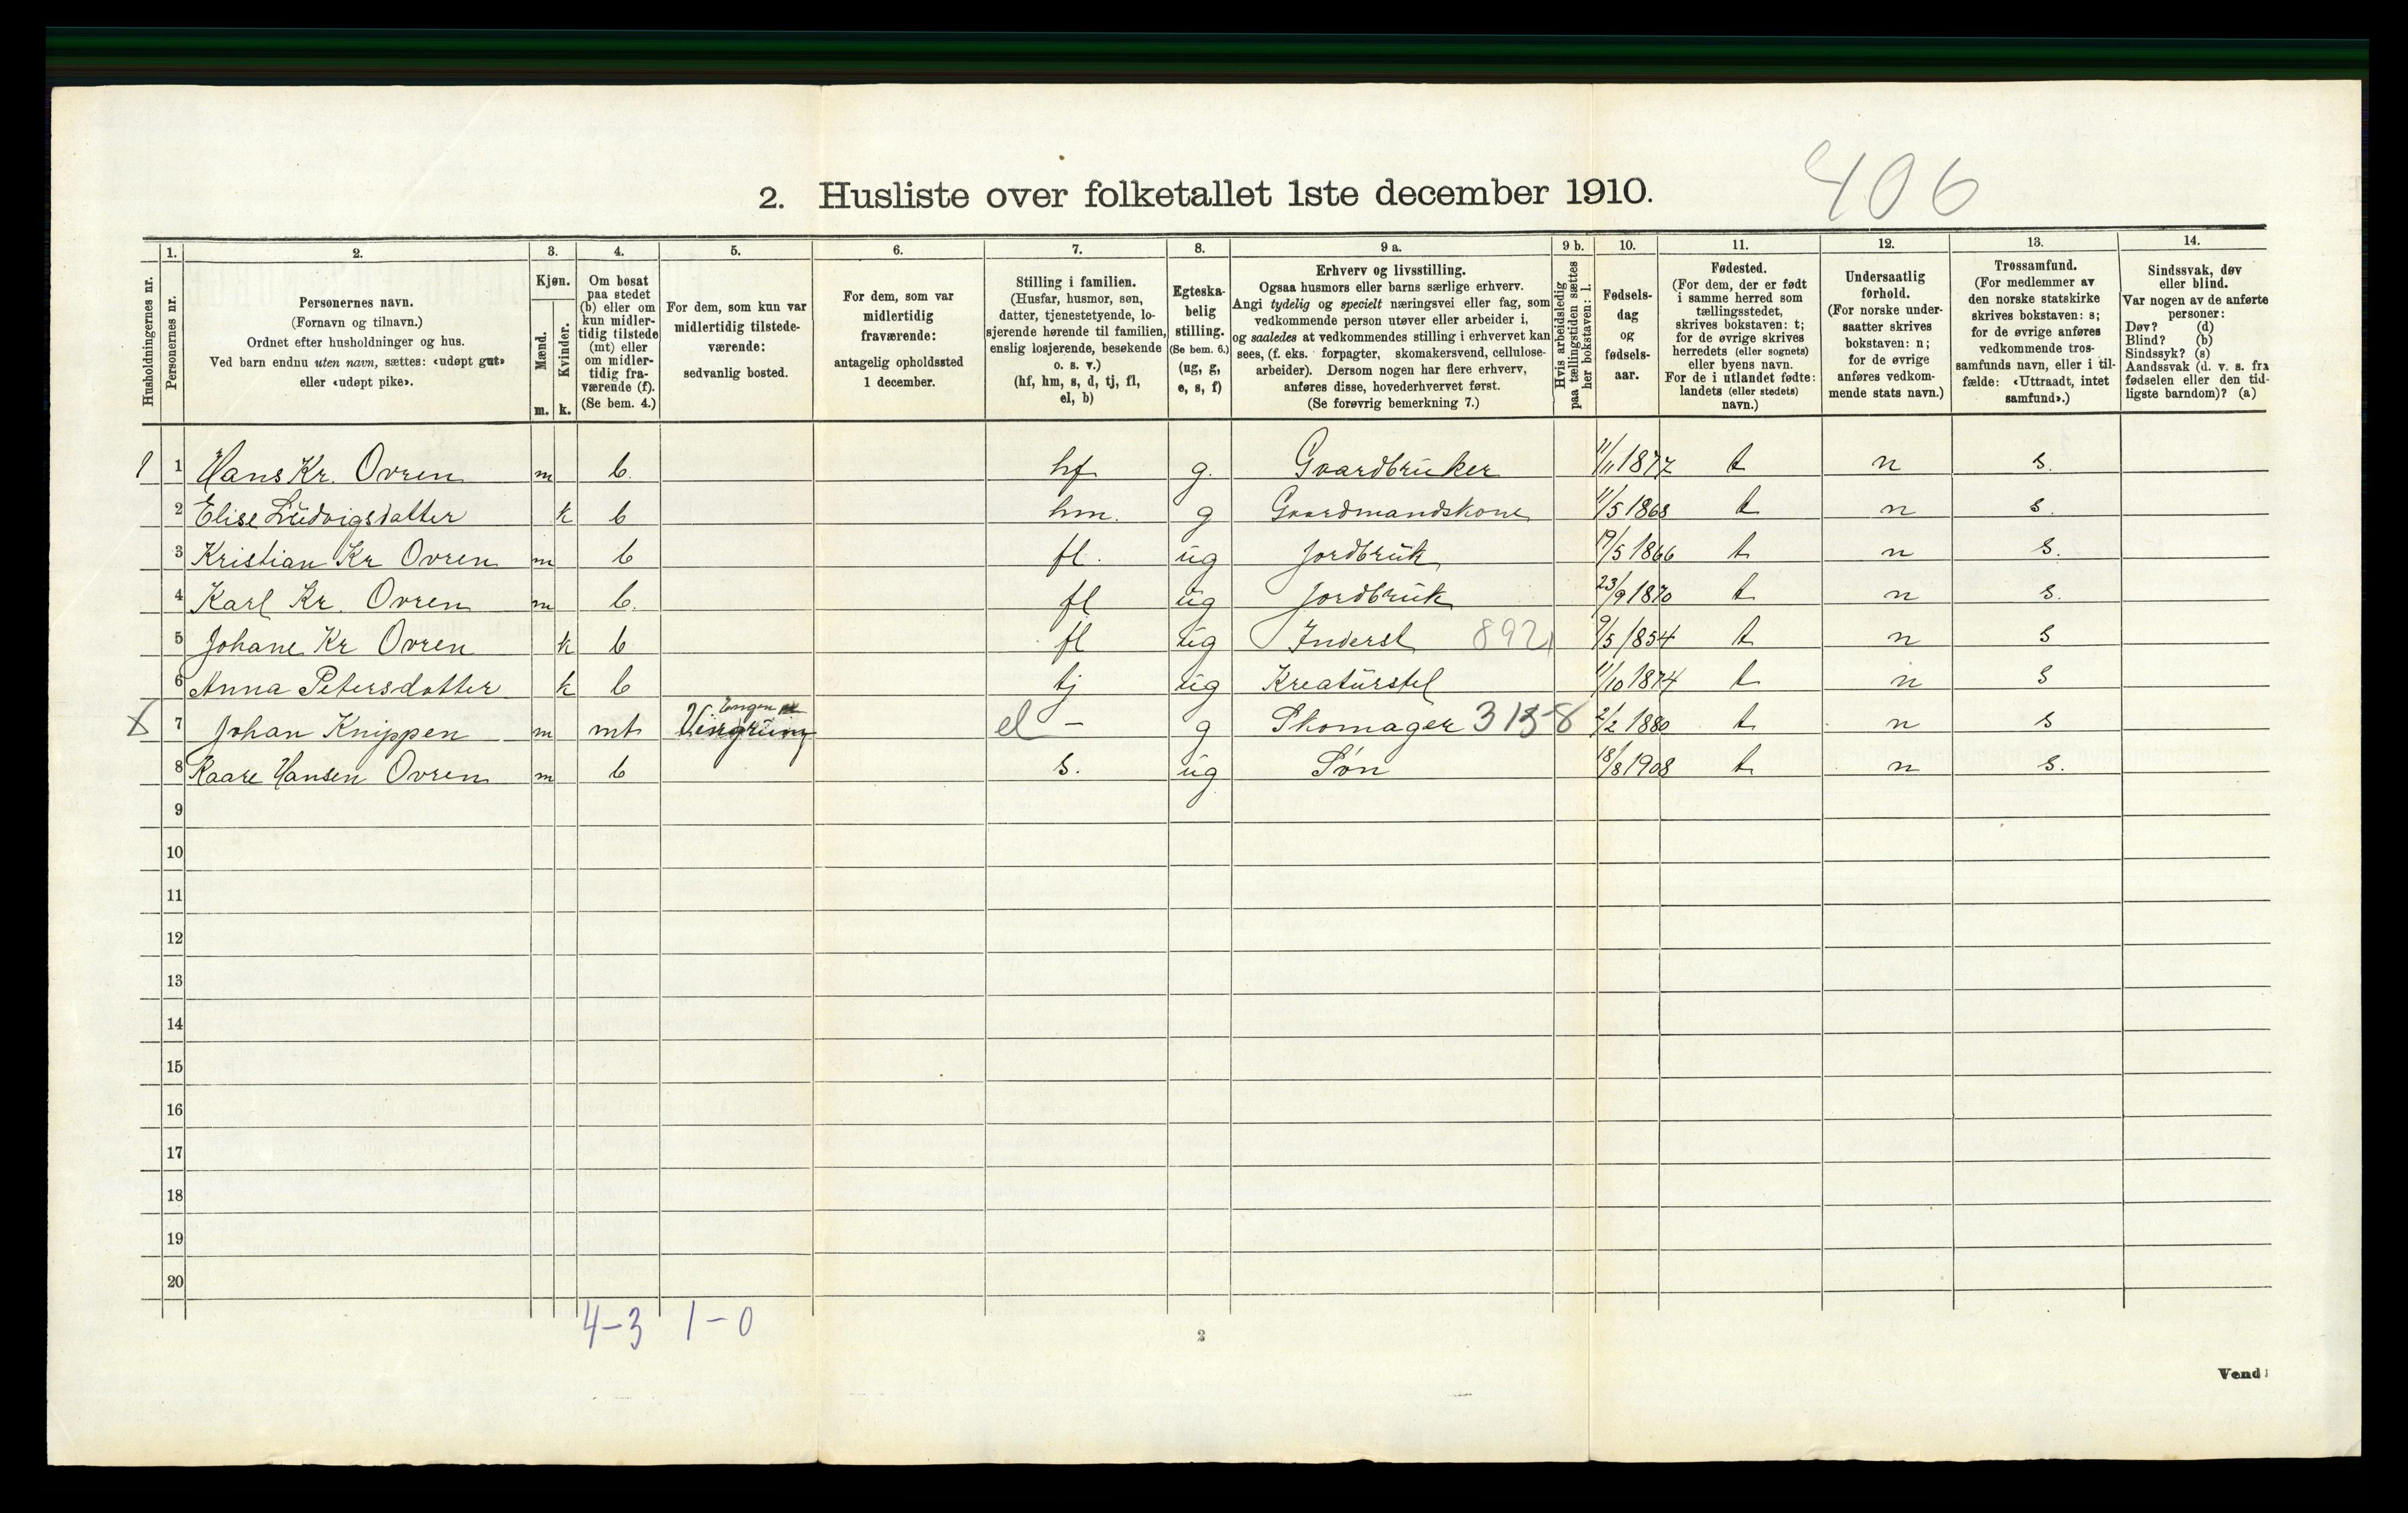 406
2. Husliste over folketallet 1ste december 1910.
Husholdningernes nr.
1.
Personernes nr.
2.
Personernes navn.
(Fornavn og tilnavn.)
Ordnet efter husholdninger og hus.
Ved barn endnu uten navn, sættes: «udøpt gut»
eller «udøpt pike».
3.
Kjøn.
Mænd.
Kvinder.
m. k.
4.
Om bosat
paa stedet
(b) eller om
kun midler-
tidig tilstede
(mt) eller
om midler-
tidig fra-
værende (f).
(Se bem. 4.)
5.
For dem, som kun var
midlertidig tilstede-
værende:
sedvanlig bosted.
6.
For dem, som var
midlertidig
fraværende:
antagelig opholdssted
1 december.
7.
Stilling i familien.
(Husfar, husmor, søn,
datter, tjenestetyende, lo-
sjerende hørende til familien,
enslig losjerende, besøkende
o. s. v.)
(hf, hm, s, d, tj, fl,
el, b)
8.
Egteska-
belig
stilling.
(Se bem. 6.)
(ug, g,
e, s, f)
9 a.
Erhverv og livsstilling.
Ogsaa husmors eller barns særlige erhverv.
Angi tydelig og specielt næringsvei eller fag, som
vedkommende person utøver eller arbeider i,
og saaledes at vedkommendes stilling i erhvervet kan
sees, (f. eks. forpagter, skomakersvend, cellulose-
arbeider). Dersom nogen har flere erhverv,
anføres disse, hovederhvervet først.
(Se forøvrig bemerkning 7.)
9 b.
Hvis arbeidsledig
paa tællingstiden sættes
her bokstaven: l.
10.
Fødsels-
dag
og
fødsels-
aar.
11.
Fødested.
(For dem, der er født
i samme herred som
tællingsstedet,
skrives bokstaven: t;
for de øvrige skrives
herredets (eller sognets)
eller byens navn.
For de i utlandet fødte:
landets (eller stedets)
navn.)
12.
Undersaatlig
forhold.
(For norske under-
saatter skrives
bokstaven: n;
for de øvrige
anføres vedkom-
mende stats navn.)
13.
Trossamfund.
(For medlemmer av
den norske statskirke
skrives bokstaven: s;
for de øvrige anføres
vedkommende tros-
samfunds navn, eller i til-
fælde: «Uttraadt, intet
samfund».)
14.
Sindssvak, døv
eller blind.
Var nogen av de anførte
personer:
Døv? (d)
Blind? (b)
Sindssyk? (s)
Aandssvak (d. v. s. fra
fødselen eller den tid-
ligste barndom)? (a)
1 1 Hans Kr. Ovren m b. hf g. Gaardbruker 11/11 1877 t n s.
2 Elise Ludvigsdatter k b hm. g Gaardmandskone 11/5 1868 t n s.
3 Kristian Kr Ovren m b fl. ug Jordbruk 19/5 1866 t n s.
4 Karl Kr. Ovren m b. fl ug Jordbruk 23/9 1870 t n s.
5 Johane Kr Ovren k b fl ug Inderst 892 9/5 1854 t n s
6 Anna Petersdatter k b tj ug Kreaturstel 11/10 1874 t n s
7 Johan Knippen m mt el - g Skomager 2/2 1880 t n s
8 Kaare Hansen Ovren m b s. ug Søn 18/8 1908 t n s.
9
10
11
12
13
14
15
16
17
18
19
20
4-3 1-0
2
Vend